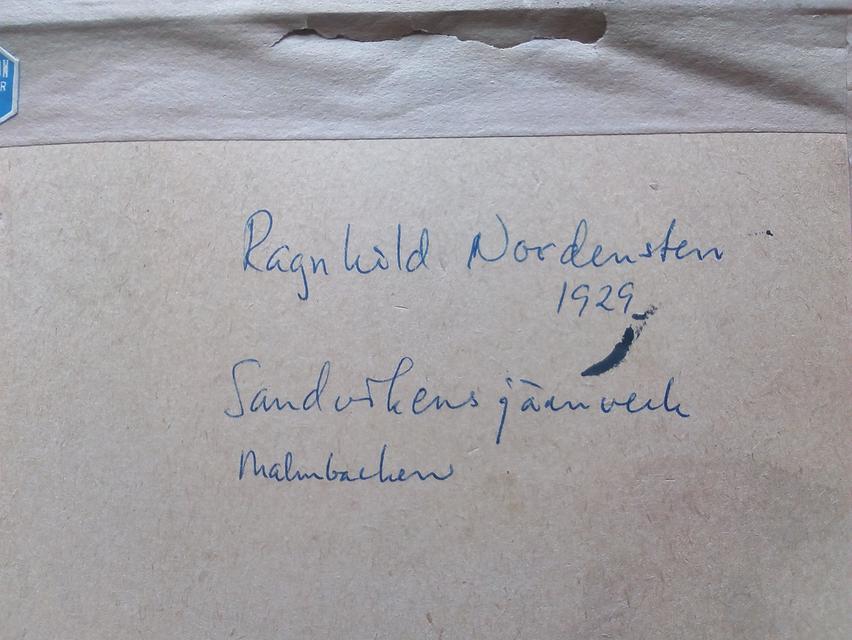 Ragnhild Nordensten
1929
Sandvikens järnverk
Malmbacken